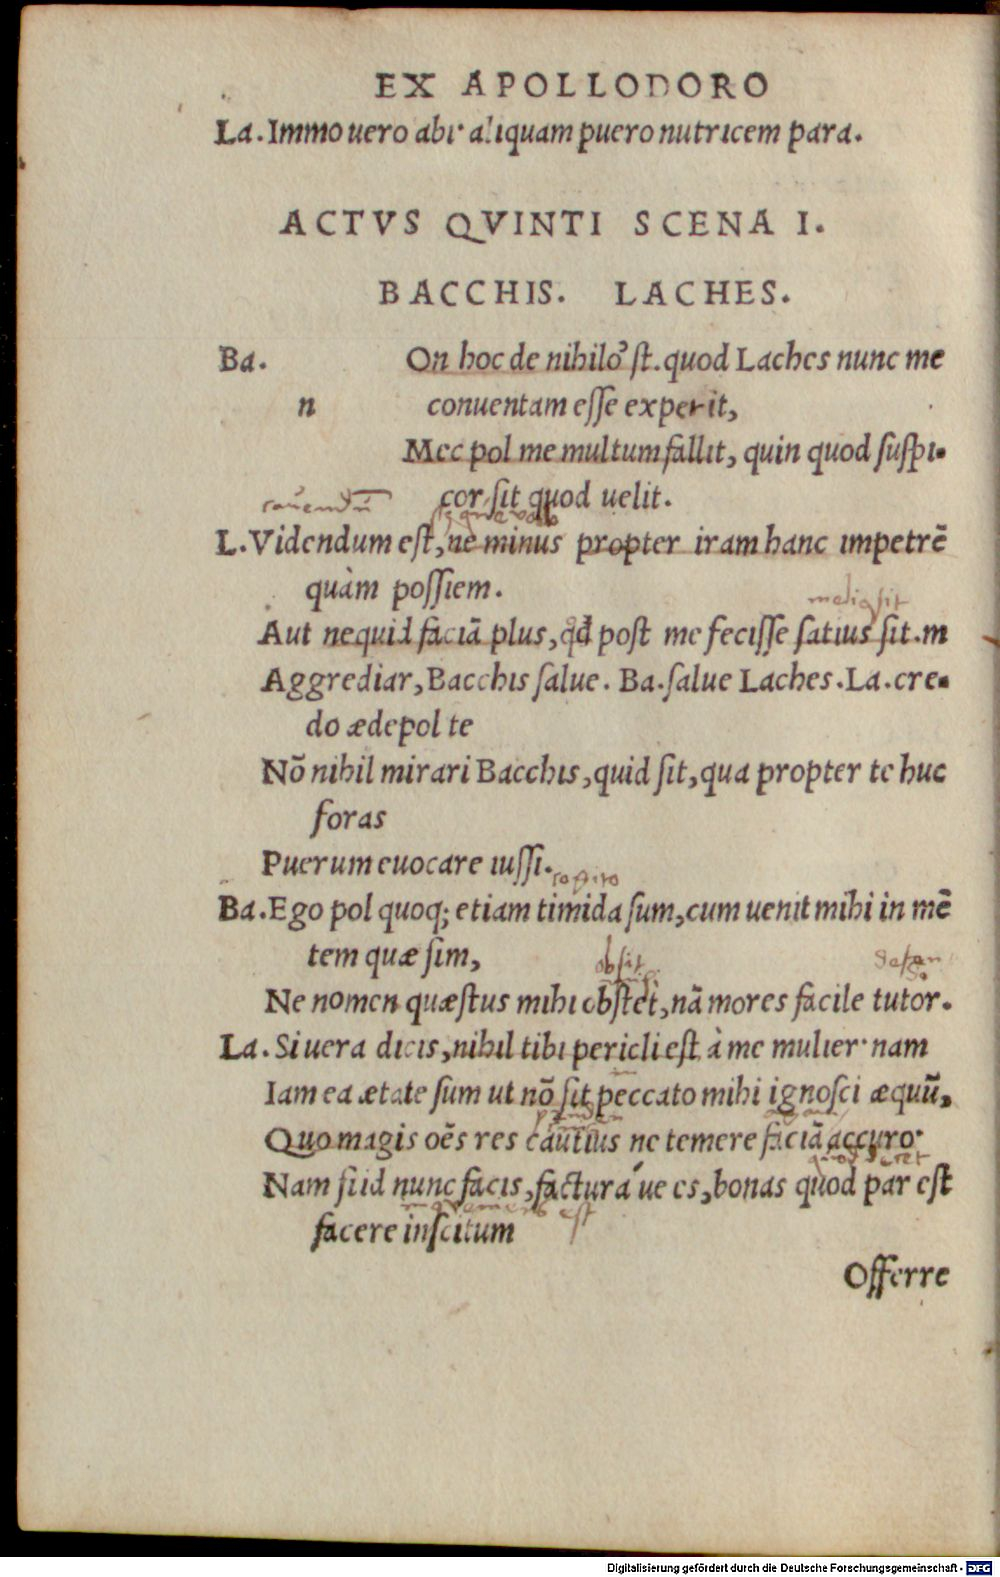 EX APOLLODORO
La. Immo uero abi· aliquam puero nutricem para.
ACTVS QVINTI SCENA I.
BACCHIS. LACHES.
Ba. On hoc de nihilo'st. quod Laches nunc me
n conuentam esse experit,
Mec pol me multum fallit, quin quod suspi-
cor, sit quod uelit.
L. Videndum est, ne minus propter iram hanc impetrē
quàm possiem.
Aut nequid faciā plus, qd post me fecisse satius sit. m
Aggrediar, Bacchis salue. Ba. salue Laches. La. cre-
do ædepol te
Nō nihil mirari Bacchis, quid sit, qua propter te huc
foras
Puerum euocare iussi.
cogito
Ba. Ego pol quoq; etiam timida sum, cum uenit mihi in mē
tem quæ sim,
obsit
Ne nomen quæstus mihi obstet, nā mores facile tutor.
La. Si uera dicis, nihil tibi pericli est à me mulier· nam
Iam ea ætate sum ut nō sit peccato mihi ignosci æquū,
Quo magis oēs res cautius ne temere faciā accuro·
Nam si id nunc facis, factura'ue es, bonas quod par est
facere inscitum
Offerre
Digitalisierung gefördert durch die Deutsche Forschungsgemeinschaft - DFG